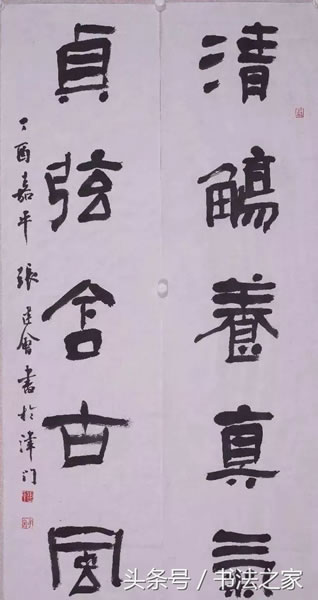 清觴養真气
貞弦含古風
丁酉嘉平 張建會書於津门
头条号／书法之家